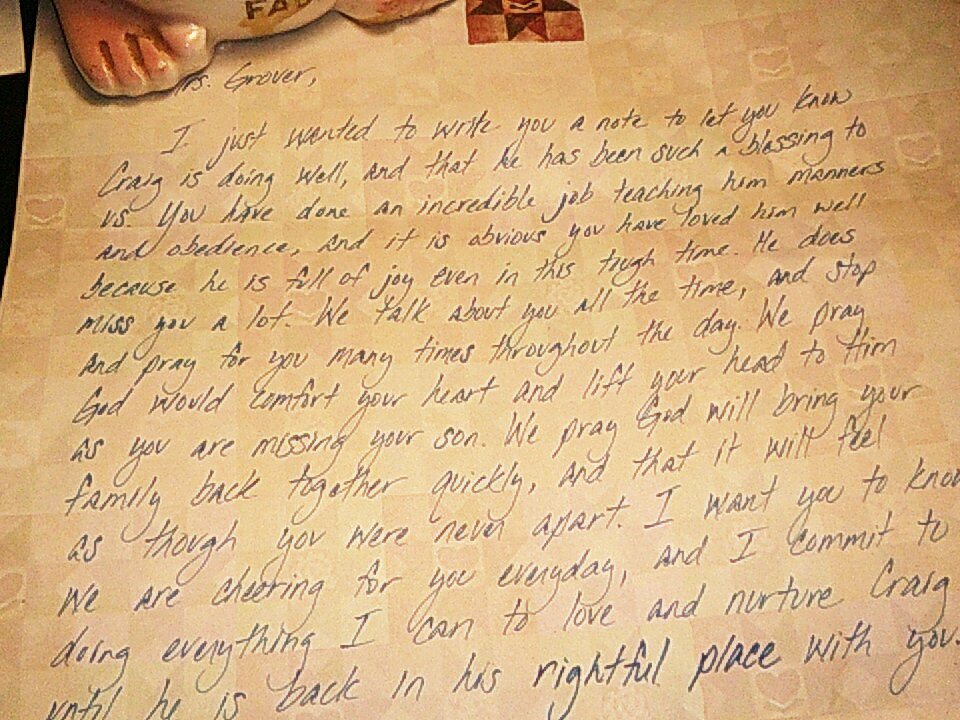 FAD
Mrs. Grover,
I just wanted to write you a note to let you know
Craig is doing well, and that he has been such a blessing to
us. You have done an incredible job teaching him manners
and obedience, and it is obvious you have loved him well
because he is full of joy even in this tough time. He does
miss you a lot. We talk about you all the time, and stop
and pray for you many times throughout the day. We pray
God would comfort your heart and lift your head to Him
as you are missing your son. We pray God will bring your
family back together quickly, and that it will feel
as though you were never apart. I want you to know
we are cheering for you everyday, and I commit to
doing everything I can to love and nurture Craig
until he is back in his rightful place with you.